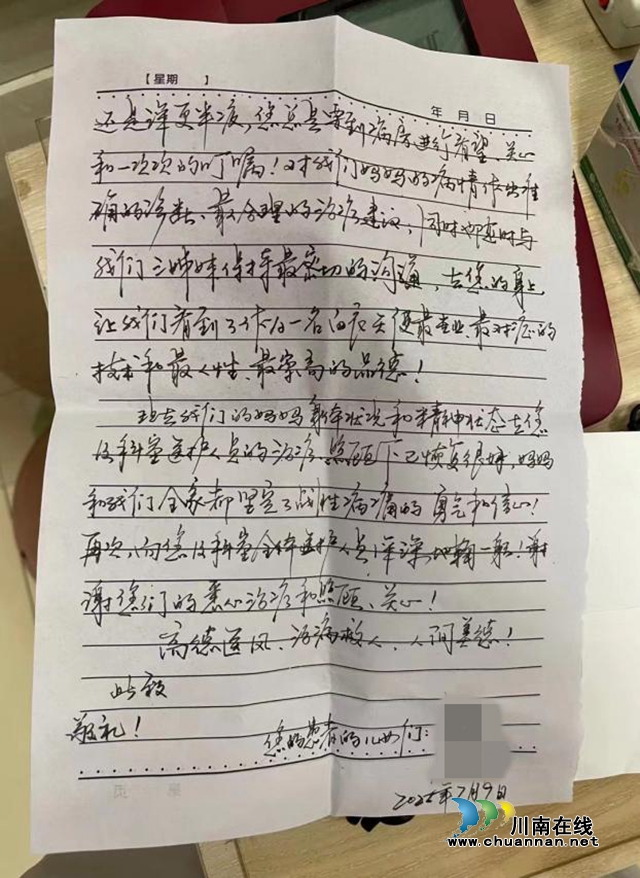 【星期 】
年 月 日
还是深更半夜，您总是要到病房进行看望、关心
和一次次的叮嘱！对我们妈妈的病情作出准
确的诊断、最合理的治疗建议，同时也随时与
我们三姊妹保持最密切的沟通，在您的身上
让我们看到了作为一名白衣天使最专业、最对症的
技术和最人性、最崇高的品德！
现在我们的妈妈身体状况和精神状态在您
及科室医护人员的治疗、照顾下已恢复很好，妈妈
和我们全家都坚定了战胜病痛的勇气和信心！
再次，向您及科室全体医护人员深深地鞠一躬！谢
谢您们的悉心治疗和照顾、关心！
高德医风、治病救人、人间美德！
此致
敬礼！
您的患者的儿女们：
2025年7月9日
川南在线
www.chuannan.net